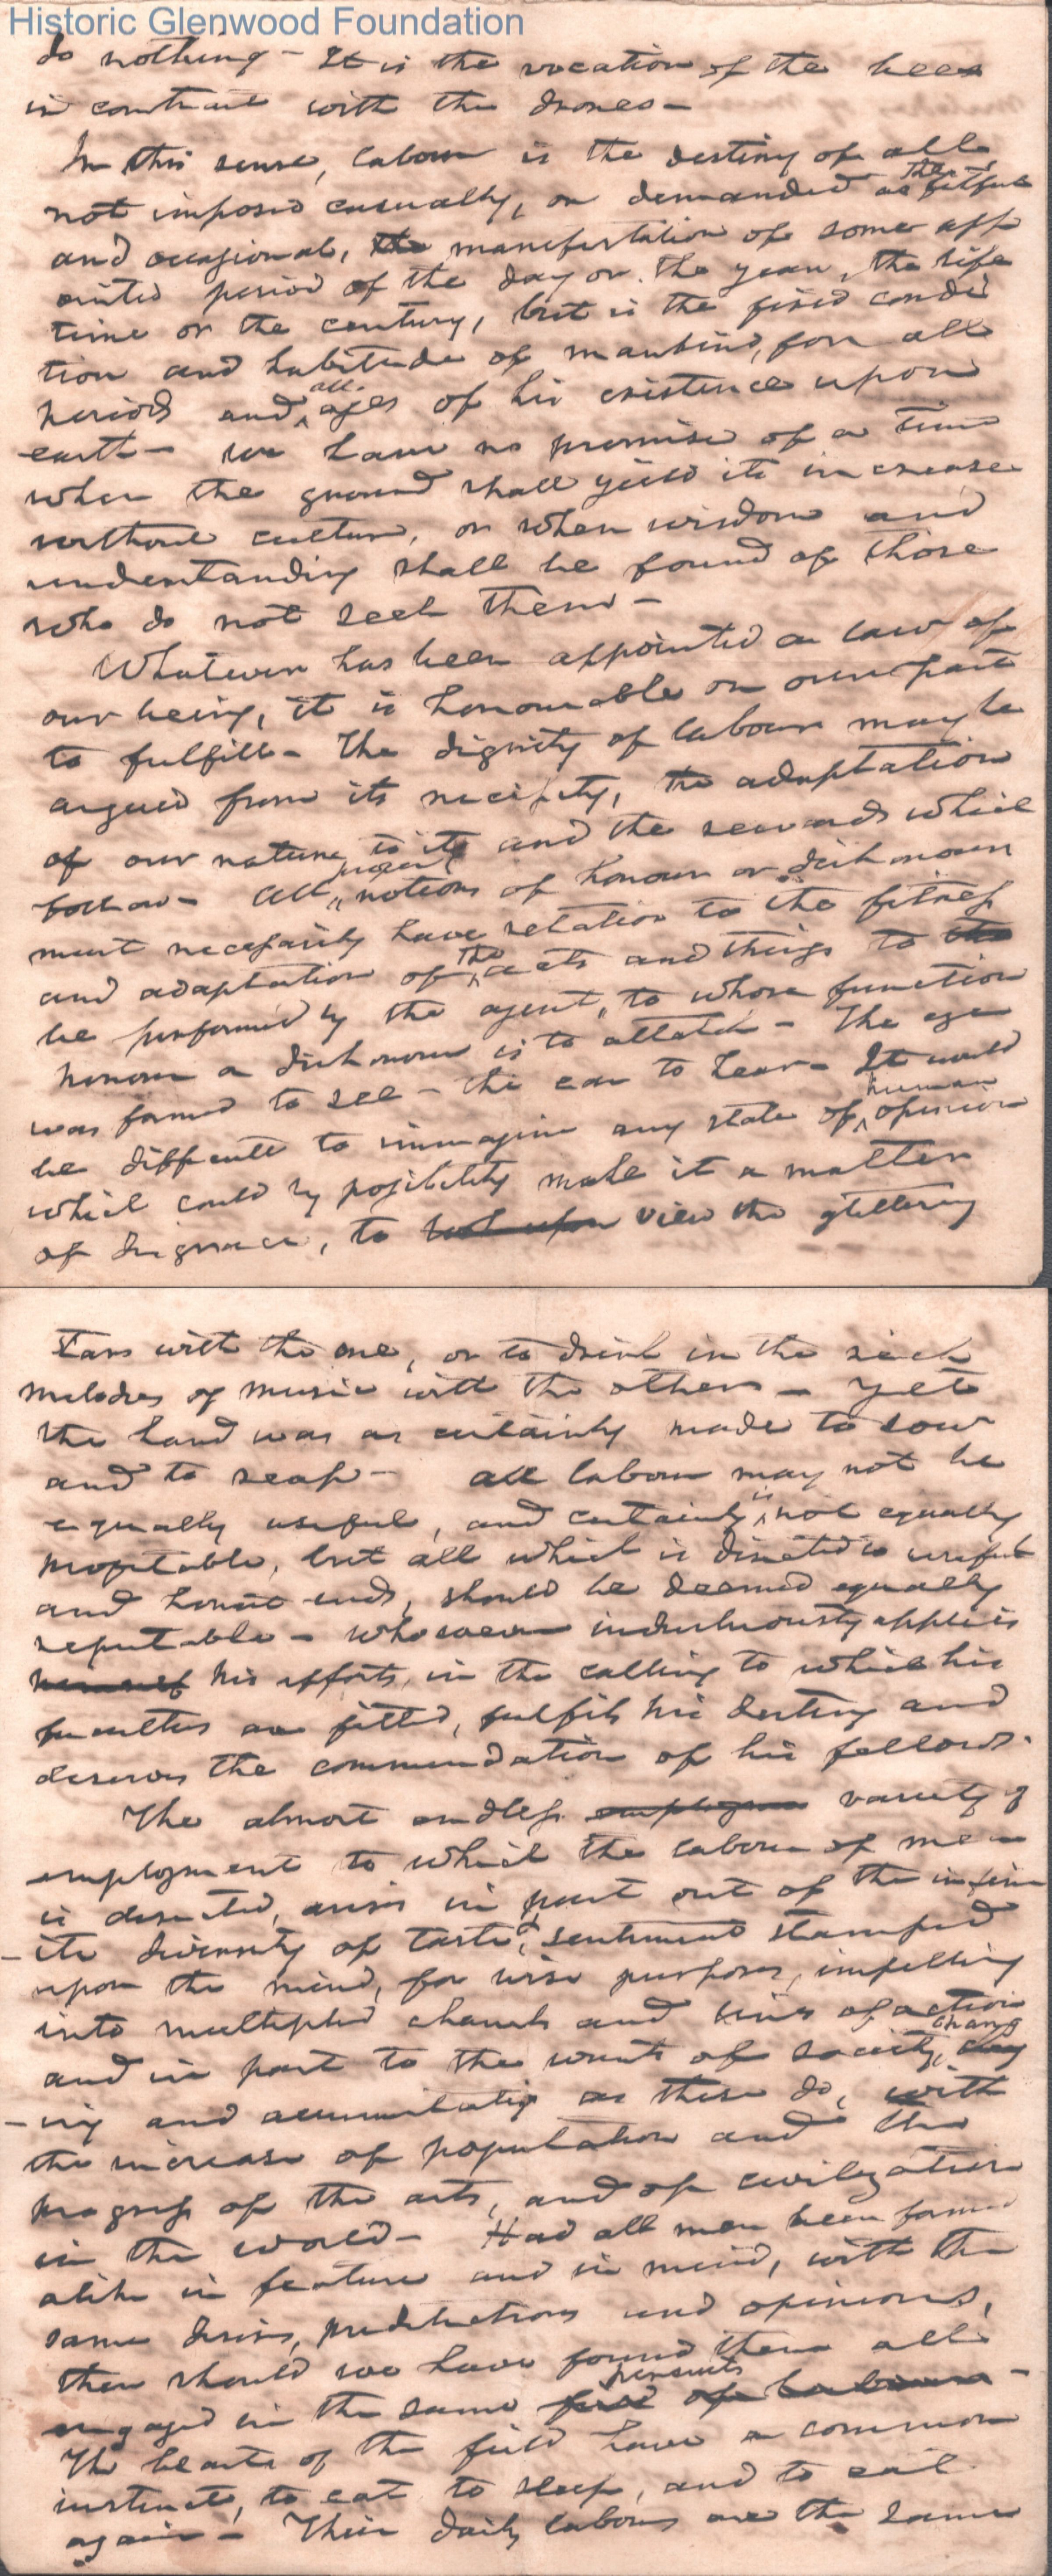 Historic Glenwood Foundation
do nothing - It is the vocation of the bees
in contrast with the drones -
In this sense, labour is the destiny of all
not imposed casually, or demanded as the fitful
and occasional, the manifestation of some app
ointed period of the day or the year, the life
time or the century, but is the fixed condi
tion and habitude of mankind, for all
periods and all ages of his existence upon
earth - we have no promise of a time
when the ground shall yield its increase
without culture, or when wisdom and
understanding shall be found of those
who do not seek them -
Whatever has been appointed a law of
our being, it is honourable on our part
to fulfill - The dignity of labour may be
argued from its necessity, the adaptation
of our nature to it, and the rewards which
follow - All notions of honour or dishonour
must necessarily have relation to the fitness
and adaptation of the acts and things to the
be performed by the agent, to whose function
honour or dishonour is to attatch - The eye
was formed to see - the ear to hear - It would
be difficult to immagine any state of human opinion
which could by possibility make it a matter
of disgrace, to look upon view the glittering
stars with the one, or to drink in the rich
melodies of music with the other - Yet
the hand was as certainly made to sow
and to reap - all labour may not be
equally useful, and certainly is not equally
profitable, but all which is directed to useful
and honest ends, should be deemed equally
reputable - whosoever industriously applies
himself his efforts, in the calling to which his
faculties are fitted, fulfils his destiny and
deserves the commendation of his fellows.
The almost endless employm variety of
employment to which the labour of men
is directed, arises in part out of the infin
-ite diversity of taste & sentiment stamped
upon the mind, for wise purposes, impelling
into multiplied channels and lines of action
and in part to the wants of society, chang
-ing and accumulating as these do, with
the increase of population and the
progress of the arts, and of civilization
in the world - Had all men been formed
alike in feature and in mind, with the
same desires, predilections and opinions,
then should we have found them all
engaged in the same pursuits field of labour -
The beasts of the field have a common
instinct, to eat to sleep, and to eat
again - Their daily labours are the same